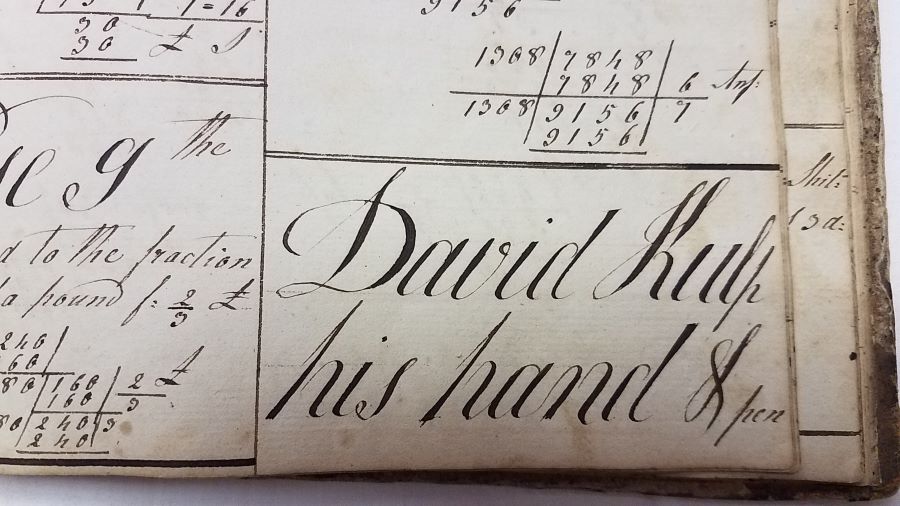 1 = 16
30
30 £ S
9156
1308 | 7848
7848 | 6 Ans:
1308 | 9156 | 7
9156
9 the
d to the fraction
a pound f: 2/3 £
240
60
80 | 160 | 2/3 £
160
80 | 240 | 3
240
David Kulp
his hand &
pen
Shil:
13d: